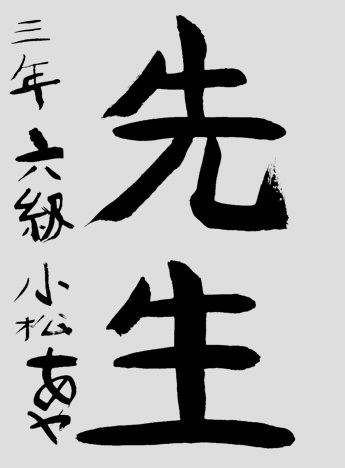 先生
三年 六級 小松あや